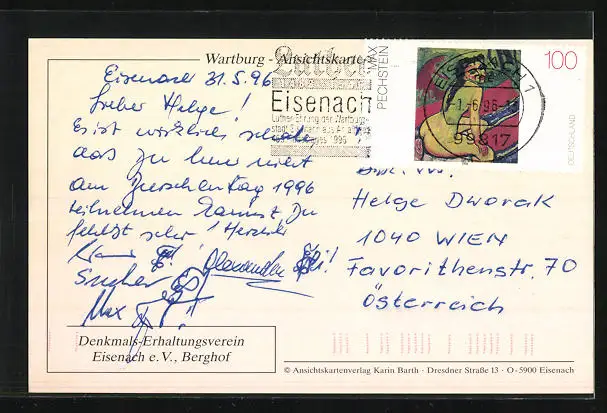 Wartburg - Ansichtskarten
Eisenach 31.5.96
Lieber Helge!
Es ist wirklich schade,
dass Du hier nicht
am Burschentag 1996
teilnehmen kannst. Du
fehlst sehr! Herzlich
Alexander
Max
Denkmals-Erhaltungsverein
Eisenach e.V., Berghof
Luther
Eisenach
Luther-Ehrung der Wartburg-
1996
MAX
PECHSTEIN
100
DEUTSCHLAND
EISENACH 1
-1.-6.96
99817
Helge Dworak
1040 WIEN
Favorithenstr. 70
Österreich
© Ansichtskartenverlag Karin Barth · Dresdner Straße 13 · O-5900 Eisenach